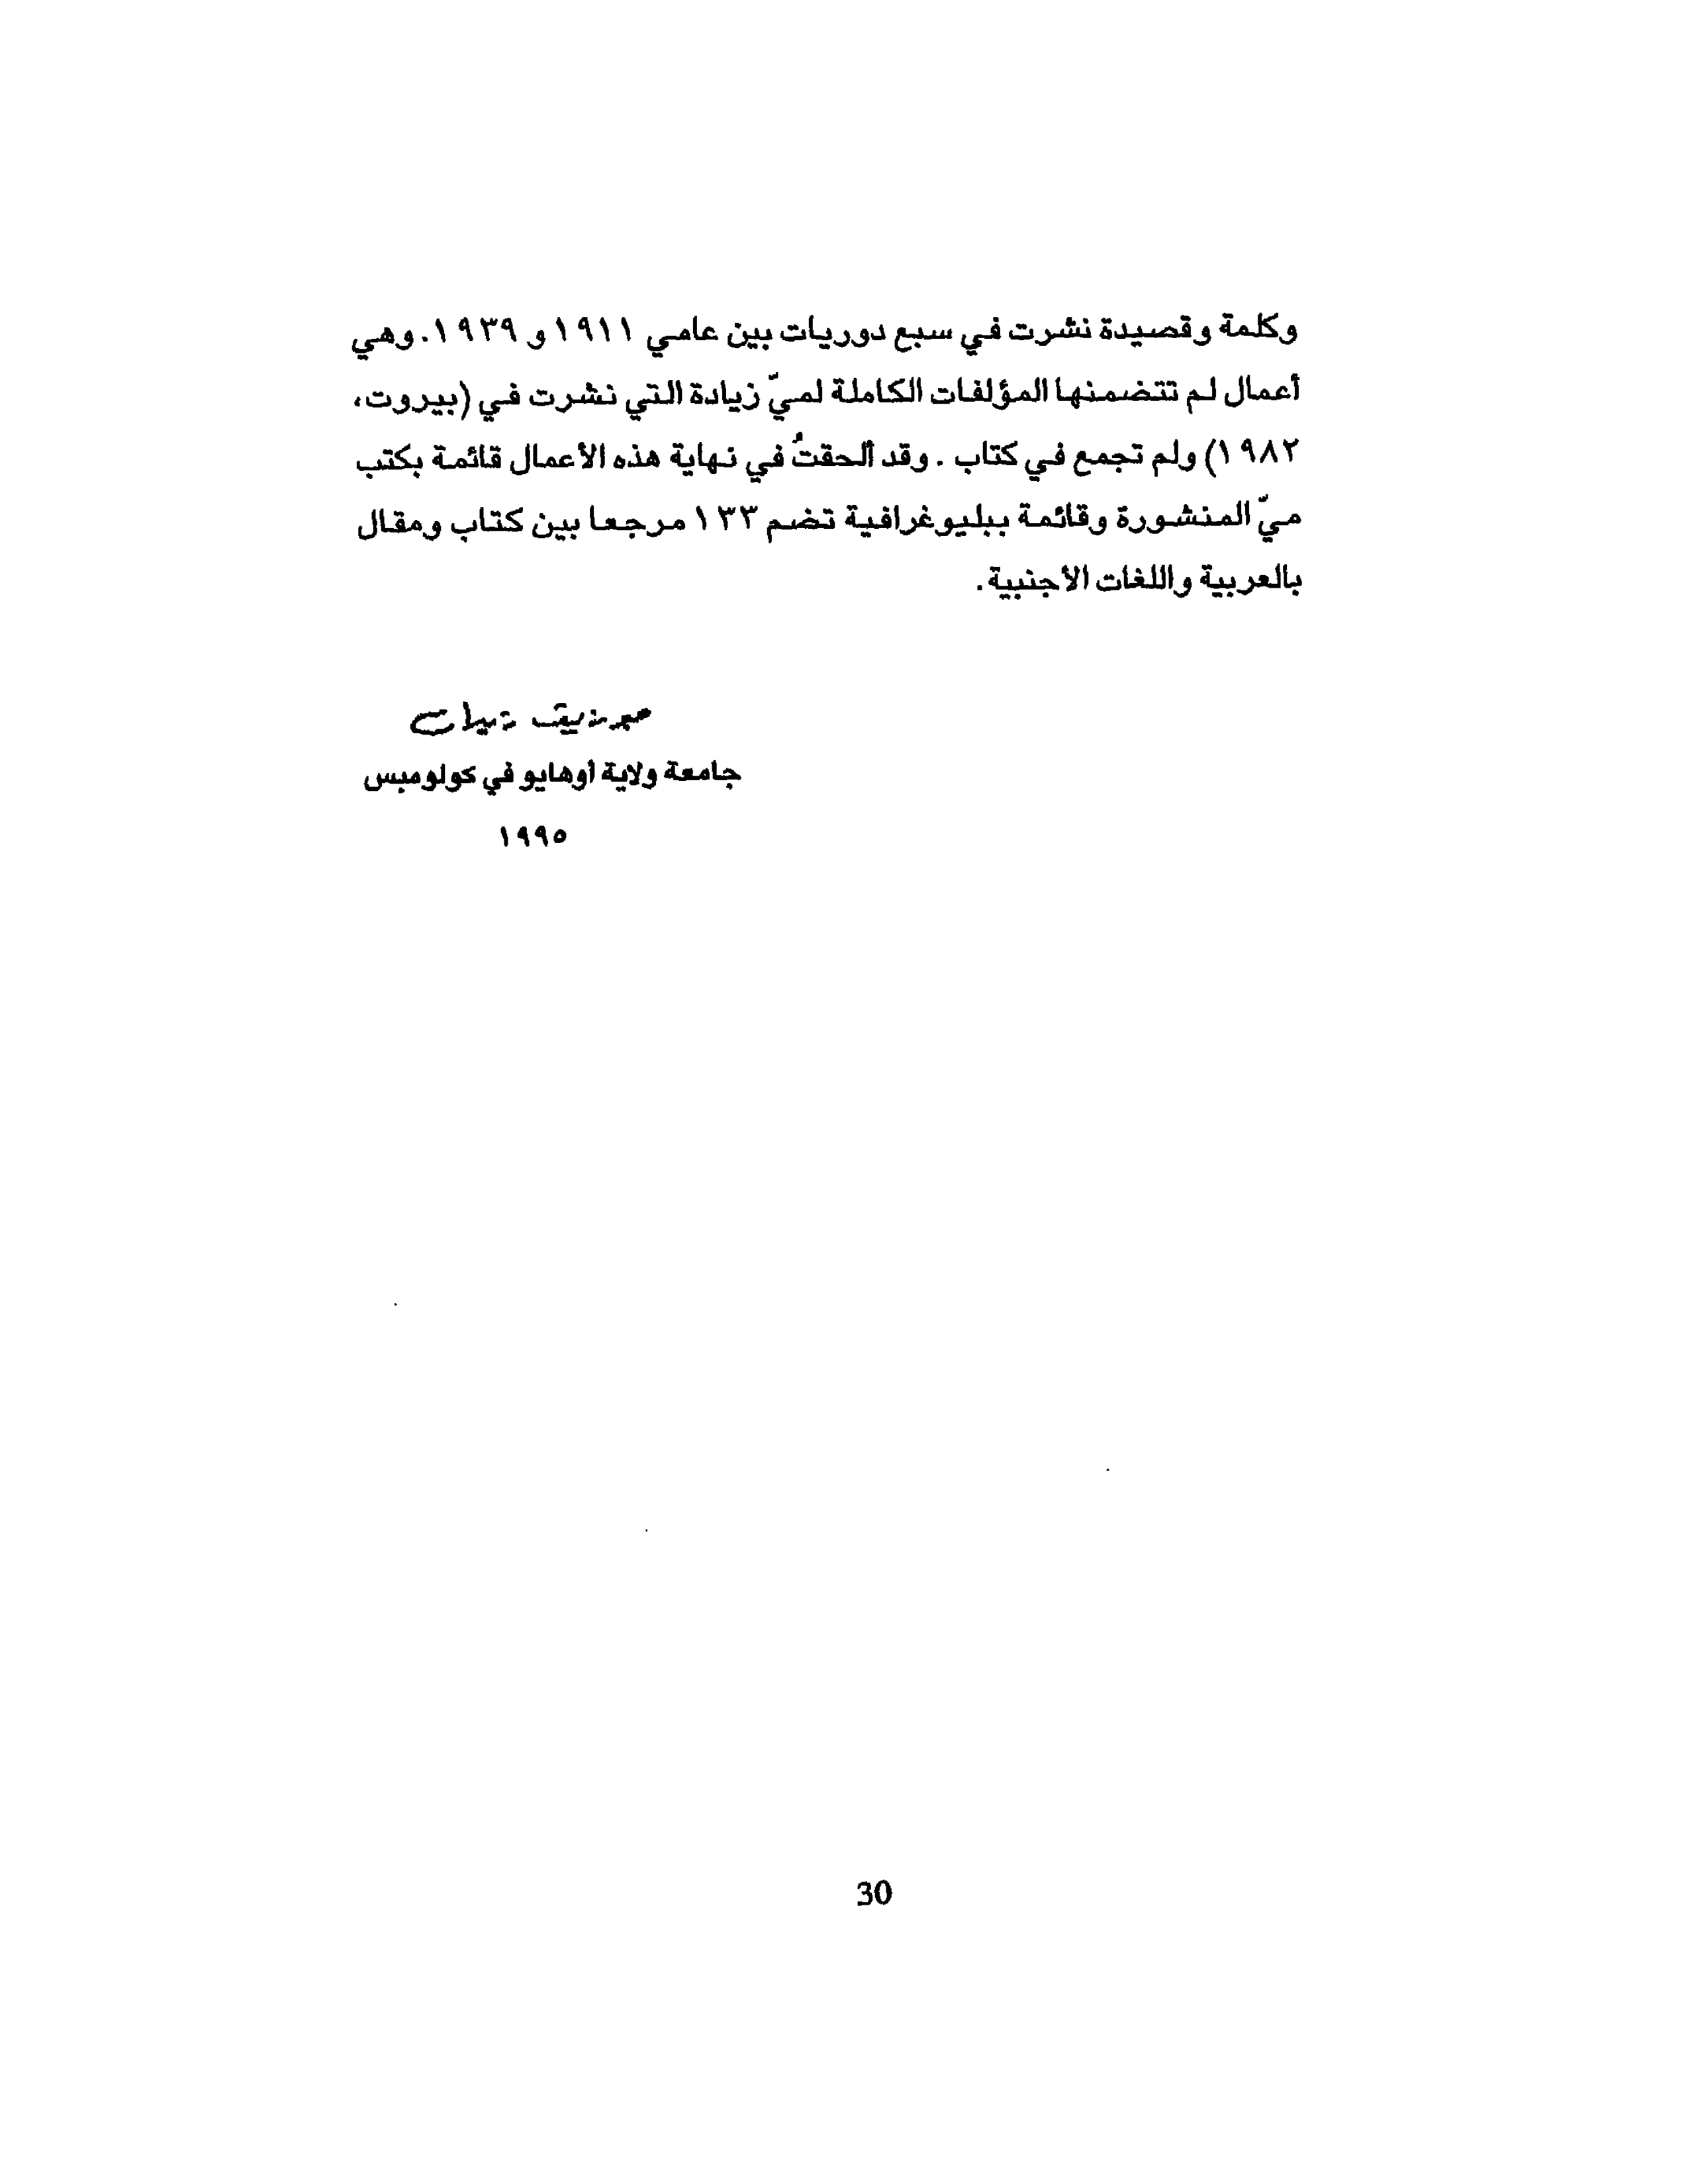 وكلمة وقصيدة نشرت في سبع دوريات بين عامي ١٩١١ و ١٩٣٩. وهي
أعمال لم تتضمنها المؤلفات الكاملة لميّ زيادة التي نشرت في (بيروت،
١٩٨٢) ولم تجمع في كتاب . وقد ألحقتُ في نهاية هذه الأعمال قائمة بكتب
ميّ المنشورة وقائمة ببليوغرافية تضم ١٣٣ مرجعا بين كتاب ومقال
بالعربية واللغات الأجنبية.
جامعة ولاية أوهايو في كولومبس
١٩٩٥
30